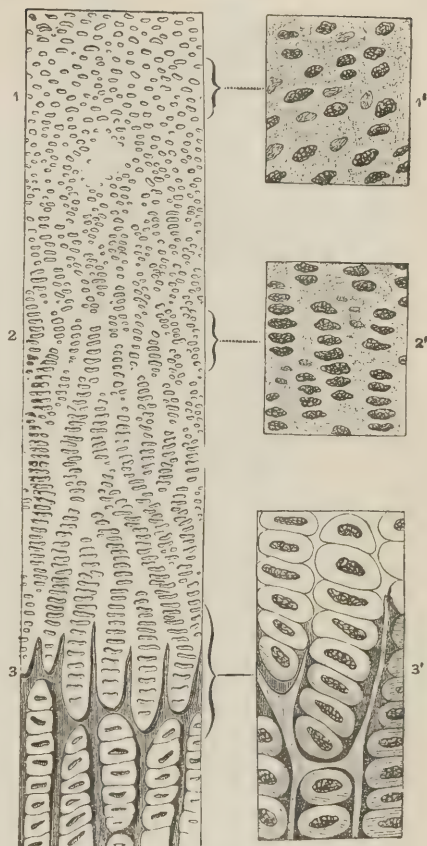 1
1'
2
2'
3
3'